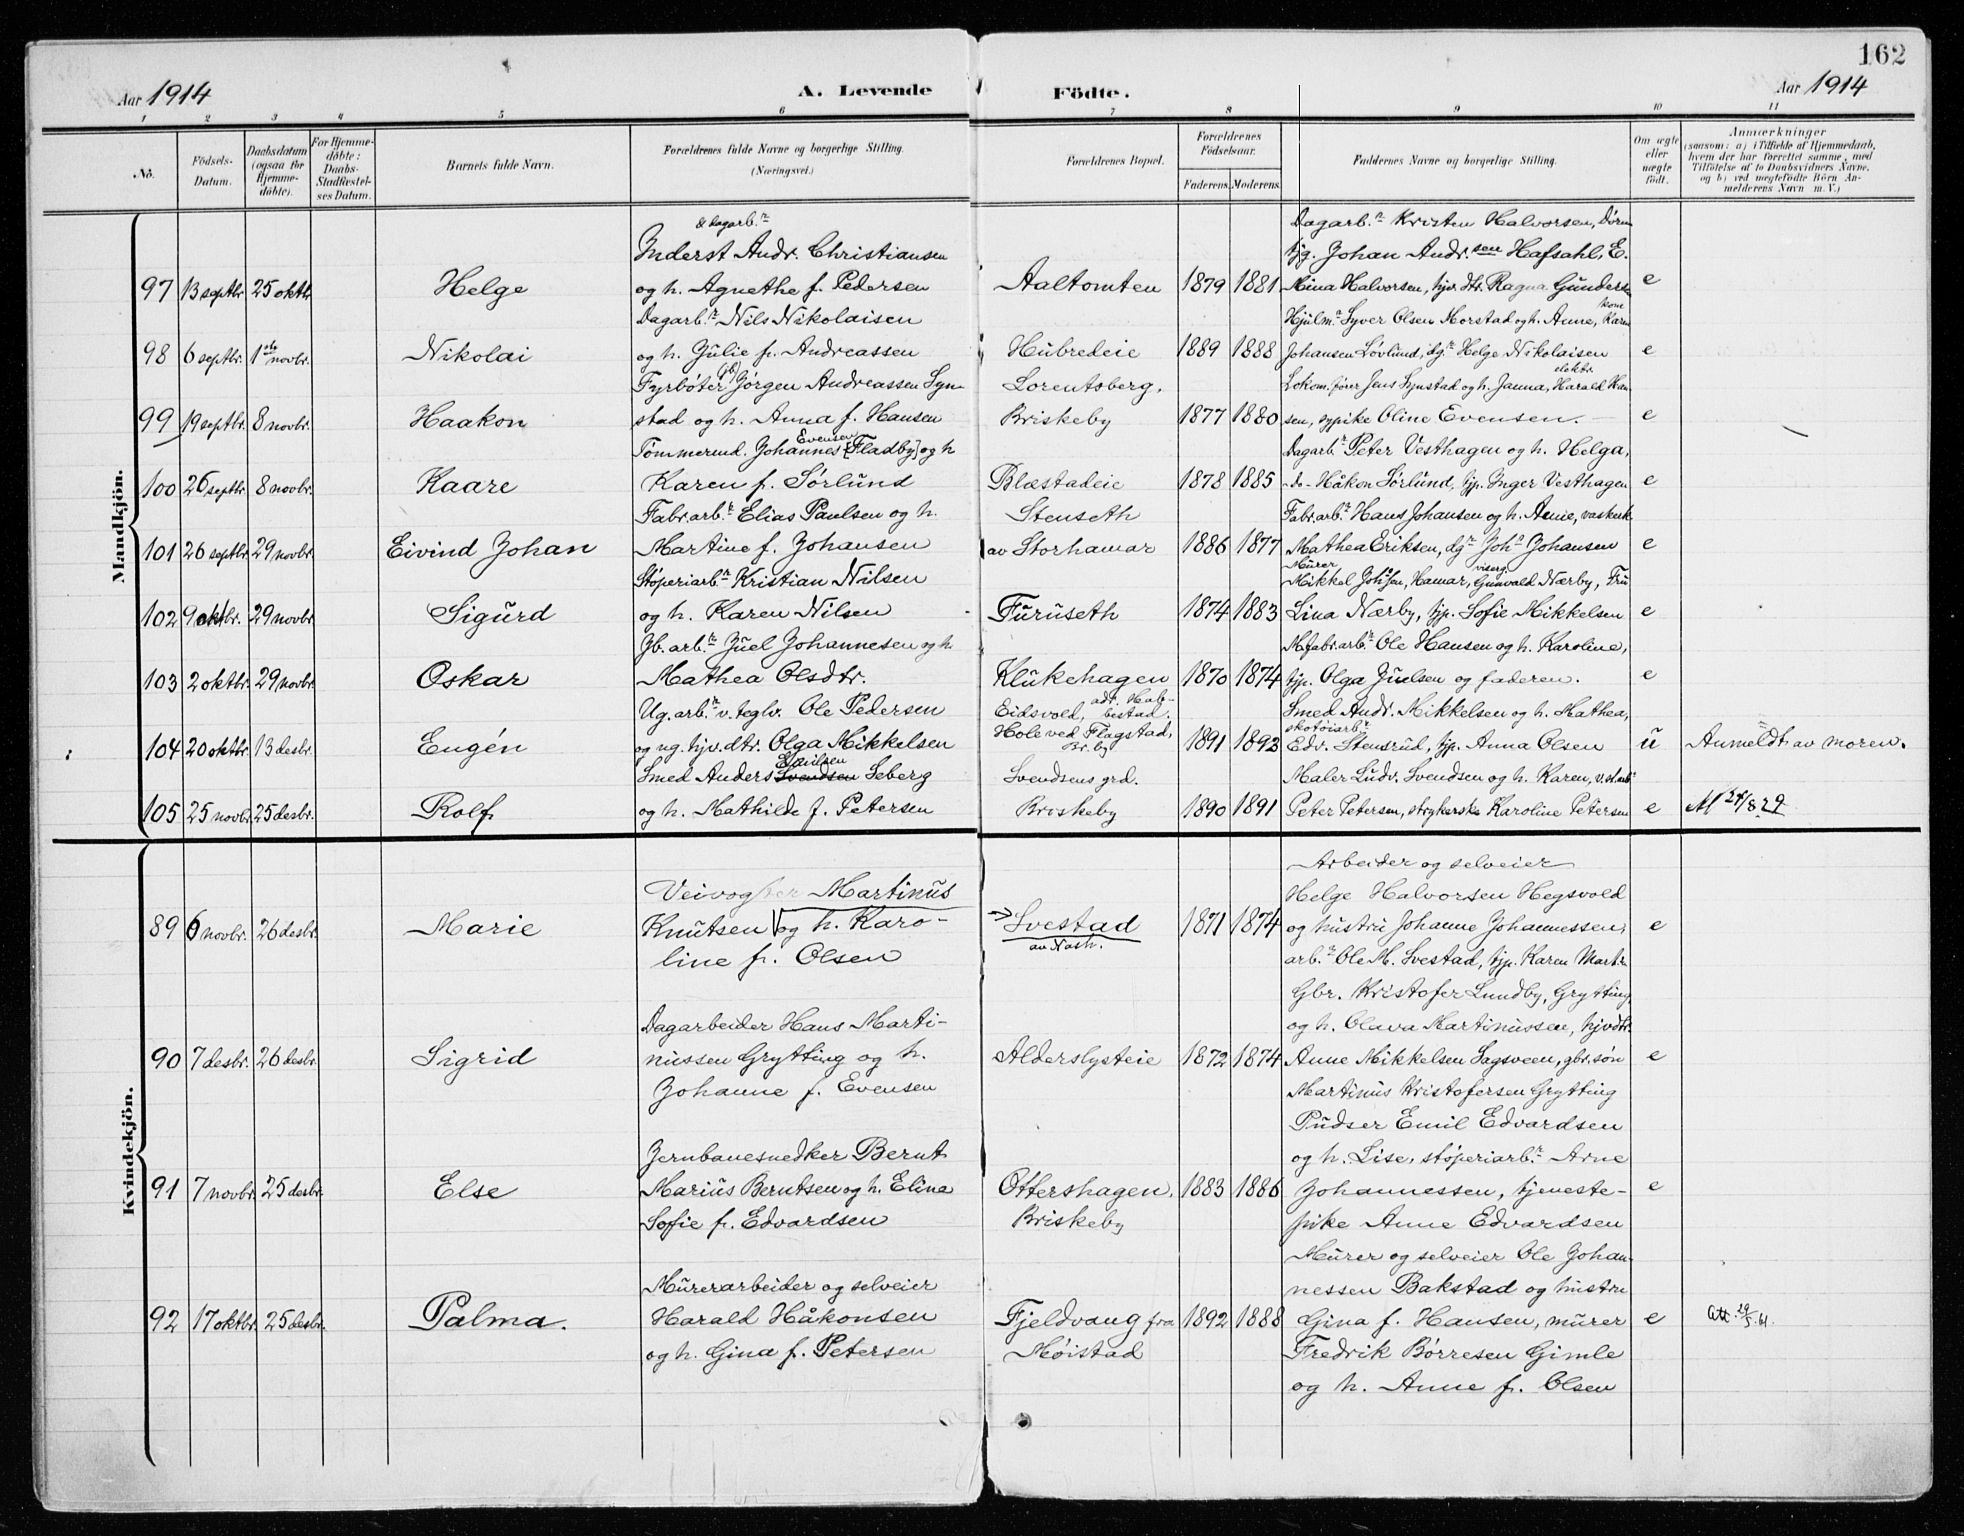 162
Aar 1914
A. Levende
Födte.
Aar 1914
1 2 3 4 5 6 7 8 9 10 11
No.
Födsels-
Datum.
Daabsdatum
(ogsaa for
Hjemme-
döbte).
For Hjemme-
döbte:
Daabs-
Stadfæstel-
ses Datum.
Barnets fulde Navn.
Forældrenes fulde Navne og borgerlige Stilling.
(Næringsvei.)
Forældrenes Bopæl.
Forældrenes
Födselsaar.
Faderens. Moderens.
Faddernes Navne og borgerlige Stilling.
Om ægte
eller
uægte
födt.
Anmærkninger
(saasom: a) i Tilfælde af Hjemmedaab,
hvem der har forrettet samme, med
Tilföielse af to Daabsvidners Navne,
og b) ved uægtefödte Börn An-
melderens Navn m. V.)
Mandkjön.
97 13 septbr. 25 oktbr. Helge
& dagarb.r
Inderst Andr. Christiansen
og h. Agnethe f. Pedersen
Aaltomten 1879 1881
Dagarb.r Kristen Halvorsen,
tjg. Johan Andr.sen Hafsahl, E.
Mina Halvorsen, hjv. dtr. Ragna Gunders
e
98 6 septbr. 1ste novbr. Nikolai
Dagarb.r Nils Nikolaisen
og h. Julie f. Andreassen
Hubredeie 1889 1888
Hjulm.r Syver Olsen Morstad og h. Anne, kone Karen
Johansen Lövlund, dgr Helge Nikolaisen
e
99 19 septbr. 8 novbr. Haakon
Fyrbøter (jb) Jørgen Andreassen Syn-
stad og h. Anna f. Hansen
Lorentsberg,
Briskeby 1877 1880
Lokom.fører Jens Synstad og h. Janna, elektr. Harald Han
sen, sypike Oline Evensen.
e
100 26 septbr. 8 novbr. Kaare
Tømmermd. Johannes Evensen [Fladby] og h
Karen f. Sørlund
Blæstadeie 1878 1885
Dagarb.r Peter Vesthagen og h. Helga,
-do- Håkon Sørlund, tjp. Inger Vesthagen
e
101 26 septbr. 29 novbr. Eivind Johan
Fabr.arb.r Elias Paulsen og h.
Martine f. Johansen
Stenseth
av Storhamar 1886 1877
Fabr.arb.r Hans Johansen og h. Anne, vaskerk
Mathea Eriksen, dgr Joh.n Johansen
e
102 9 oktbr. 29 novbr. Sigurd
Støperiarb.r Kristian Nilsen
og h. Karen Nilsen
Furuseth 1874 1883
Murer
Mikkel Johsen, Hamar, Gunvald Nærby, Fru
Lina Nærby, tjp. Sofie Mikkelsen
e
103 2 oktbr. 29 novbr. Oskar
Jb. arb.r Juel Johannesen og h
Mathea Olsdtr.
Klukehagen 1870 1874
Mfabr.arb.r Ole Hansen og h. Karoline,
tjp. Olga Juelsen og faderen.
e
104 20 oktbr. 13 desbr. Eugén
Ug. arb.r v. teglv. Ole Pedersen
og ug. hjv. dtr. Olga Mikkelsen
Eidsvold,
Hole ved Flagstad,
Br.by 1891 1892
Smed Andr. Mikkelsen og h. Mathea,
skotøiarb.r
Edv. Stensrud, tjp. Anna Olsen
u Anmeldt av moren.
105 25 novbr. 25 desbr. Rolf
Smed Anders Svendsen Paulsen Seberg
og h. Mathilde f. Petersen
Svendsens grd.
Briskeby 1890 1891
Maler Ludv. Svendsen og h. Karen,
Peter Petersen, strykerske Karoline Petersen
e M 24/8 29
Kvindekjön.
89 6 novbr. 26 desbr. Marie
Veivogter Martinus
Knutsen og h. Karo-
line f. Olsen
Svestad
av Nash. 1871 1874
Arbeider og selveier
Helge Halvorsen Hegsvold
og hustru Johanne Johannessen,
arb.r Ole M. Svestad, tjp. Karen Mart.n
e
90 7 desbr. 26 desbr. Sigrid
Dagarbeider Hans Marti-
nussen Grytting og h.
Johanne f. Evensen
Alderslysteie 1872 1874
Gbr. Kristofer Lundby, Grytting
og h. Olava Martinussen, hjvdtr.
Anne Mikkelsen Sagsveen, gbr.søn
Martinus Kristofersen Grytting
e
91 7 novbr. 25 desbr. Else
Jernbanesnedker Bernt
Marius Berntsen og h. Elina
Sofie f. Edvardsen
Ottershagen,
Briskeby 1883 1886
Pudser Emil Edvardsen
og h. Lise, støperiarb.r Arne
Johannessen, tjeneste-
pike Anne Edvardsen
e
92 17 oktbr. 25 desbr. Palma.
Murerarbeider og selveier
Harald Håkonsen
og h. Gina f. Petersen
Fjeldvang fra
Møistad 1892 1888
Murer og selveier Ole Johan-
nessen Bakstad og hustru
Gina f. Hansen, murer
Fredrik Børresen Gimle
og h. Anne f. Olsen
e Att. 29/5.61.